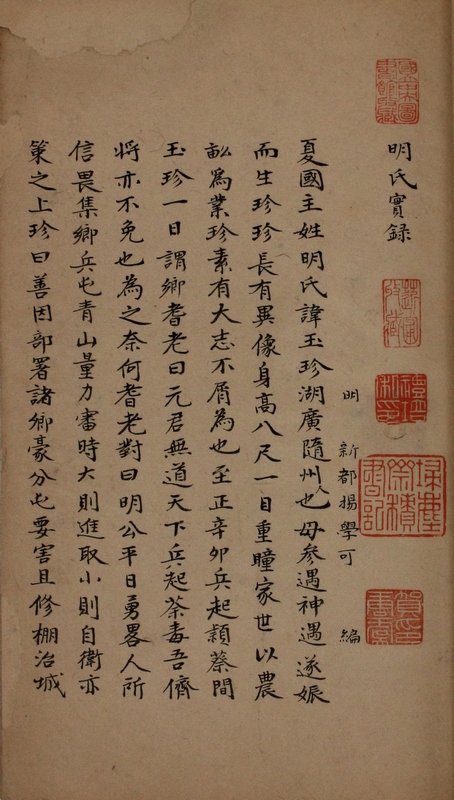 明氏實録
明　新都揚學可　編
夏國主姓明氏諱玉珍湖廣隨州人也母參遇神遇遂娠
而生珍珍長有異像身高八尺一目重瞳家世以農
畝爲業珍素有大志不屑爲也至正辛夘兵起頴蔡間
玉珍一日謂鄉耆老曰元君無道天下兵起荼毒吾儕
将亦不免也為之奈何耆老對曰明公平日勇畧人所
信畏集鄉兵屯青山量力審時大則進取小則自衛亦
策之上珍曰善因部署諸鄉豪分屯要害且修棚治城
禮培私印
埽塵齋積書記